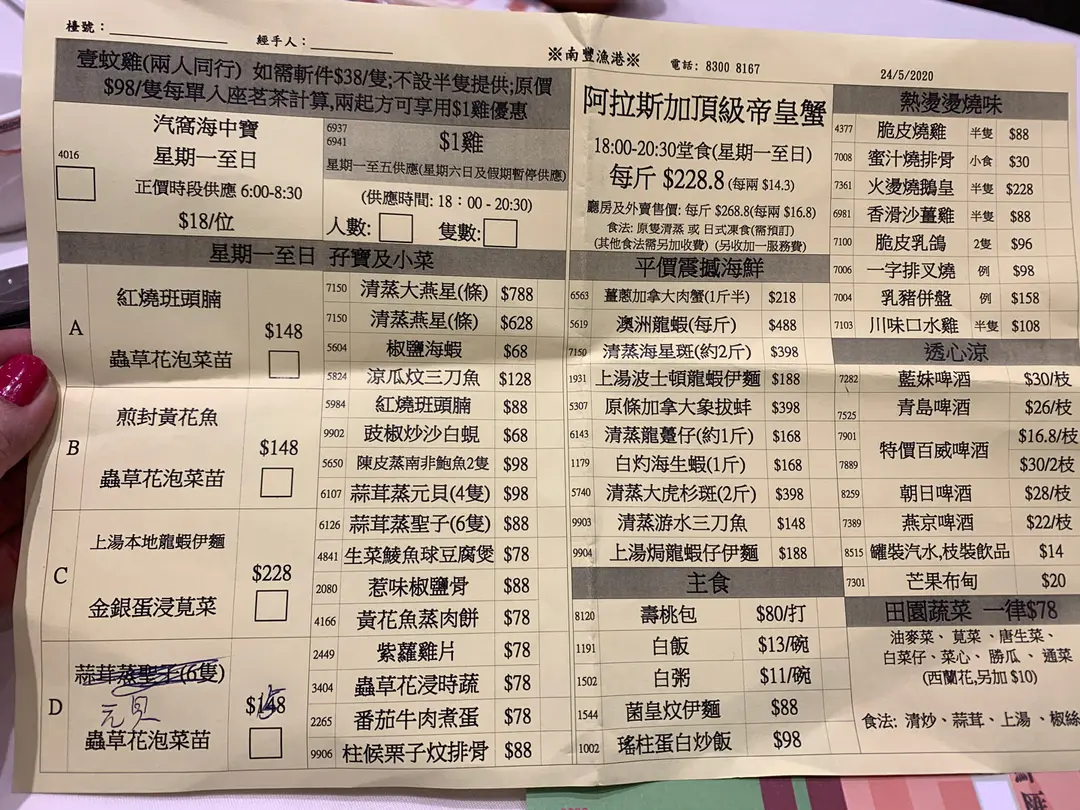 檯號：
經手人：
※南豐漁港※
電話: 8300 8167
24/5/2020
壹蚊雞(兩人同行) 如需斬件$38/隻;不設半隻提供;原價
$98/隻每單人座茗茶計算,兩起方可享用$1雞優惠
4016
汽窩海中寶
星期一至日
正價時段供應 6:00-8:30
$18/位
6937
6941
$1雞
星期一至五供應(星期六日及假期暫停供應)
(供應時間: 18：00 - 20:30)
人數:
隻數:
星期一至日 孖寶及小菜
A
紅燒班頭腩
$148
蟲草花泡菜苗
B
煎封黃花魚
$148
蟲草花泡菜苗
C
上湯本地龍蝦伊麵
$228
金銀蛋浸莧菜
D
蒜茸蒸聖子(6隻)
元貝
蟲草花泡菜苗
7150 清蒸大燕星(條) $788
7150 清蒸燕星(條) $628
5604 椒鹽海蝦 $68
5824 涼瓜炆三刀魚 $128
5984 紅燒班頭腩 $88
9902 豉椒炒沙白蜆 $68
5650 陳皮蒸南非鮑魚2隻 $98
6107 蒜茸蒸元貝(4隻) $98
6126 蒜茸蒸聖子(6隻) $88
4841 生菜鯪魚球豆腐煲 $78
2080 惹味椒鹽骨 $88
4166 黃花魚蒸肉餅 $78
2449 紫蘿雞片 $78
3404 蟲草花浸時蔬 $78
2265 番茄牛肉煮蛋 $78
9906 柱候栗子炆排骨 $88
阿拉斯加頂級帝皇蟹
18:00-20:30堂食(星期一至日)
每斤 $228.8 (每兩 $14.3)
廳房及外賣售價: 每斤 $268.8(每兩 $16.8)
食法: 原隻清蒸 或 日式凍食(需預訂)
(其他食法需另加收費) (另收加一服務費)
平價震撼海鮮
6563 薑蔥加拿大肉蟹(1斤半) $218
5619 澳洲龍蝦(每斤) $488
7150 清蒸海星斑(約2斤) $398
1931 上湯波士頓龍蝦伊麵 $188
5307 原條加拿大象拔蚌 $398
6143 清蒸龍躉仔(約1斤) $168
1179 白灼海生蝦(1斤) $168
5740 清蒸大虎杉斑(2斤) $398
9903 清蒸游水三刀魚 $148
9904 上湯焗龍蝦仔伊麵 $188
主食
8120 壽桃包 $80/打
1191 白飯 $13/碗
1502 白粥 $11/碗
1544 菌皇炆伊麵 $88
1002 瑤柱蛋白炒飯 $98
熱燙燙燒味
4377 脆皮燒雞 半隻 $88
7008 蜜汁燒排骨 小食 $30
7361 火燙燒鵝皇 半隻 $228
6981 香滑沙薑雞 半隻 $88
7100 脆皮乳鴿 2隻 $96
7006 一字排叉燒 例 $98
7004 乳豬併盤 例 $158
7103 川味口水雞 半隻 $108
透心涼
7282 藍妹啤酒 $30/枝
7525 青島啤酒 $26/枝
7901 特價百威啤酒 $16.8/枝
7889 $30/2枝
8259 朝日啤酒 $28/枝
7389 燕京啤酒 $22/枝
8515 罐裝汽水,枝裝飲品 $14
7301 芒果布甸 $20
田園蔬菜 一律$78
油麥菜、莧菜、唐生菜、
白菜仔、菜心、勝瓜、通菜
(西蘭花,另加 $10)
食法: 清炒、蒜茸、上湯、椒絲